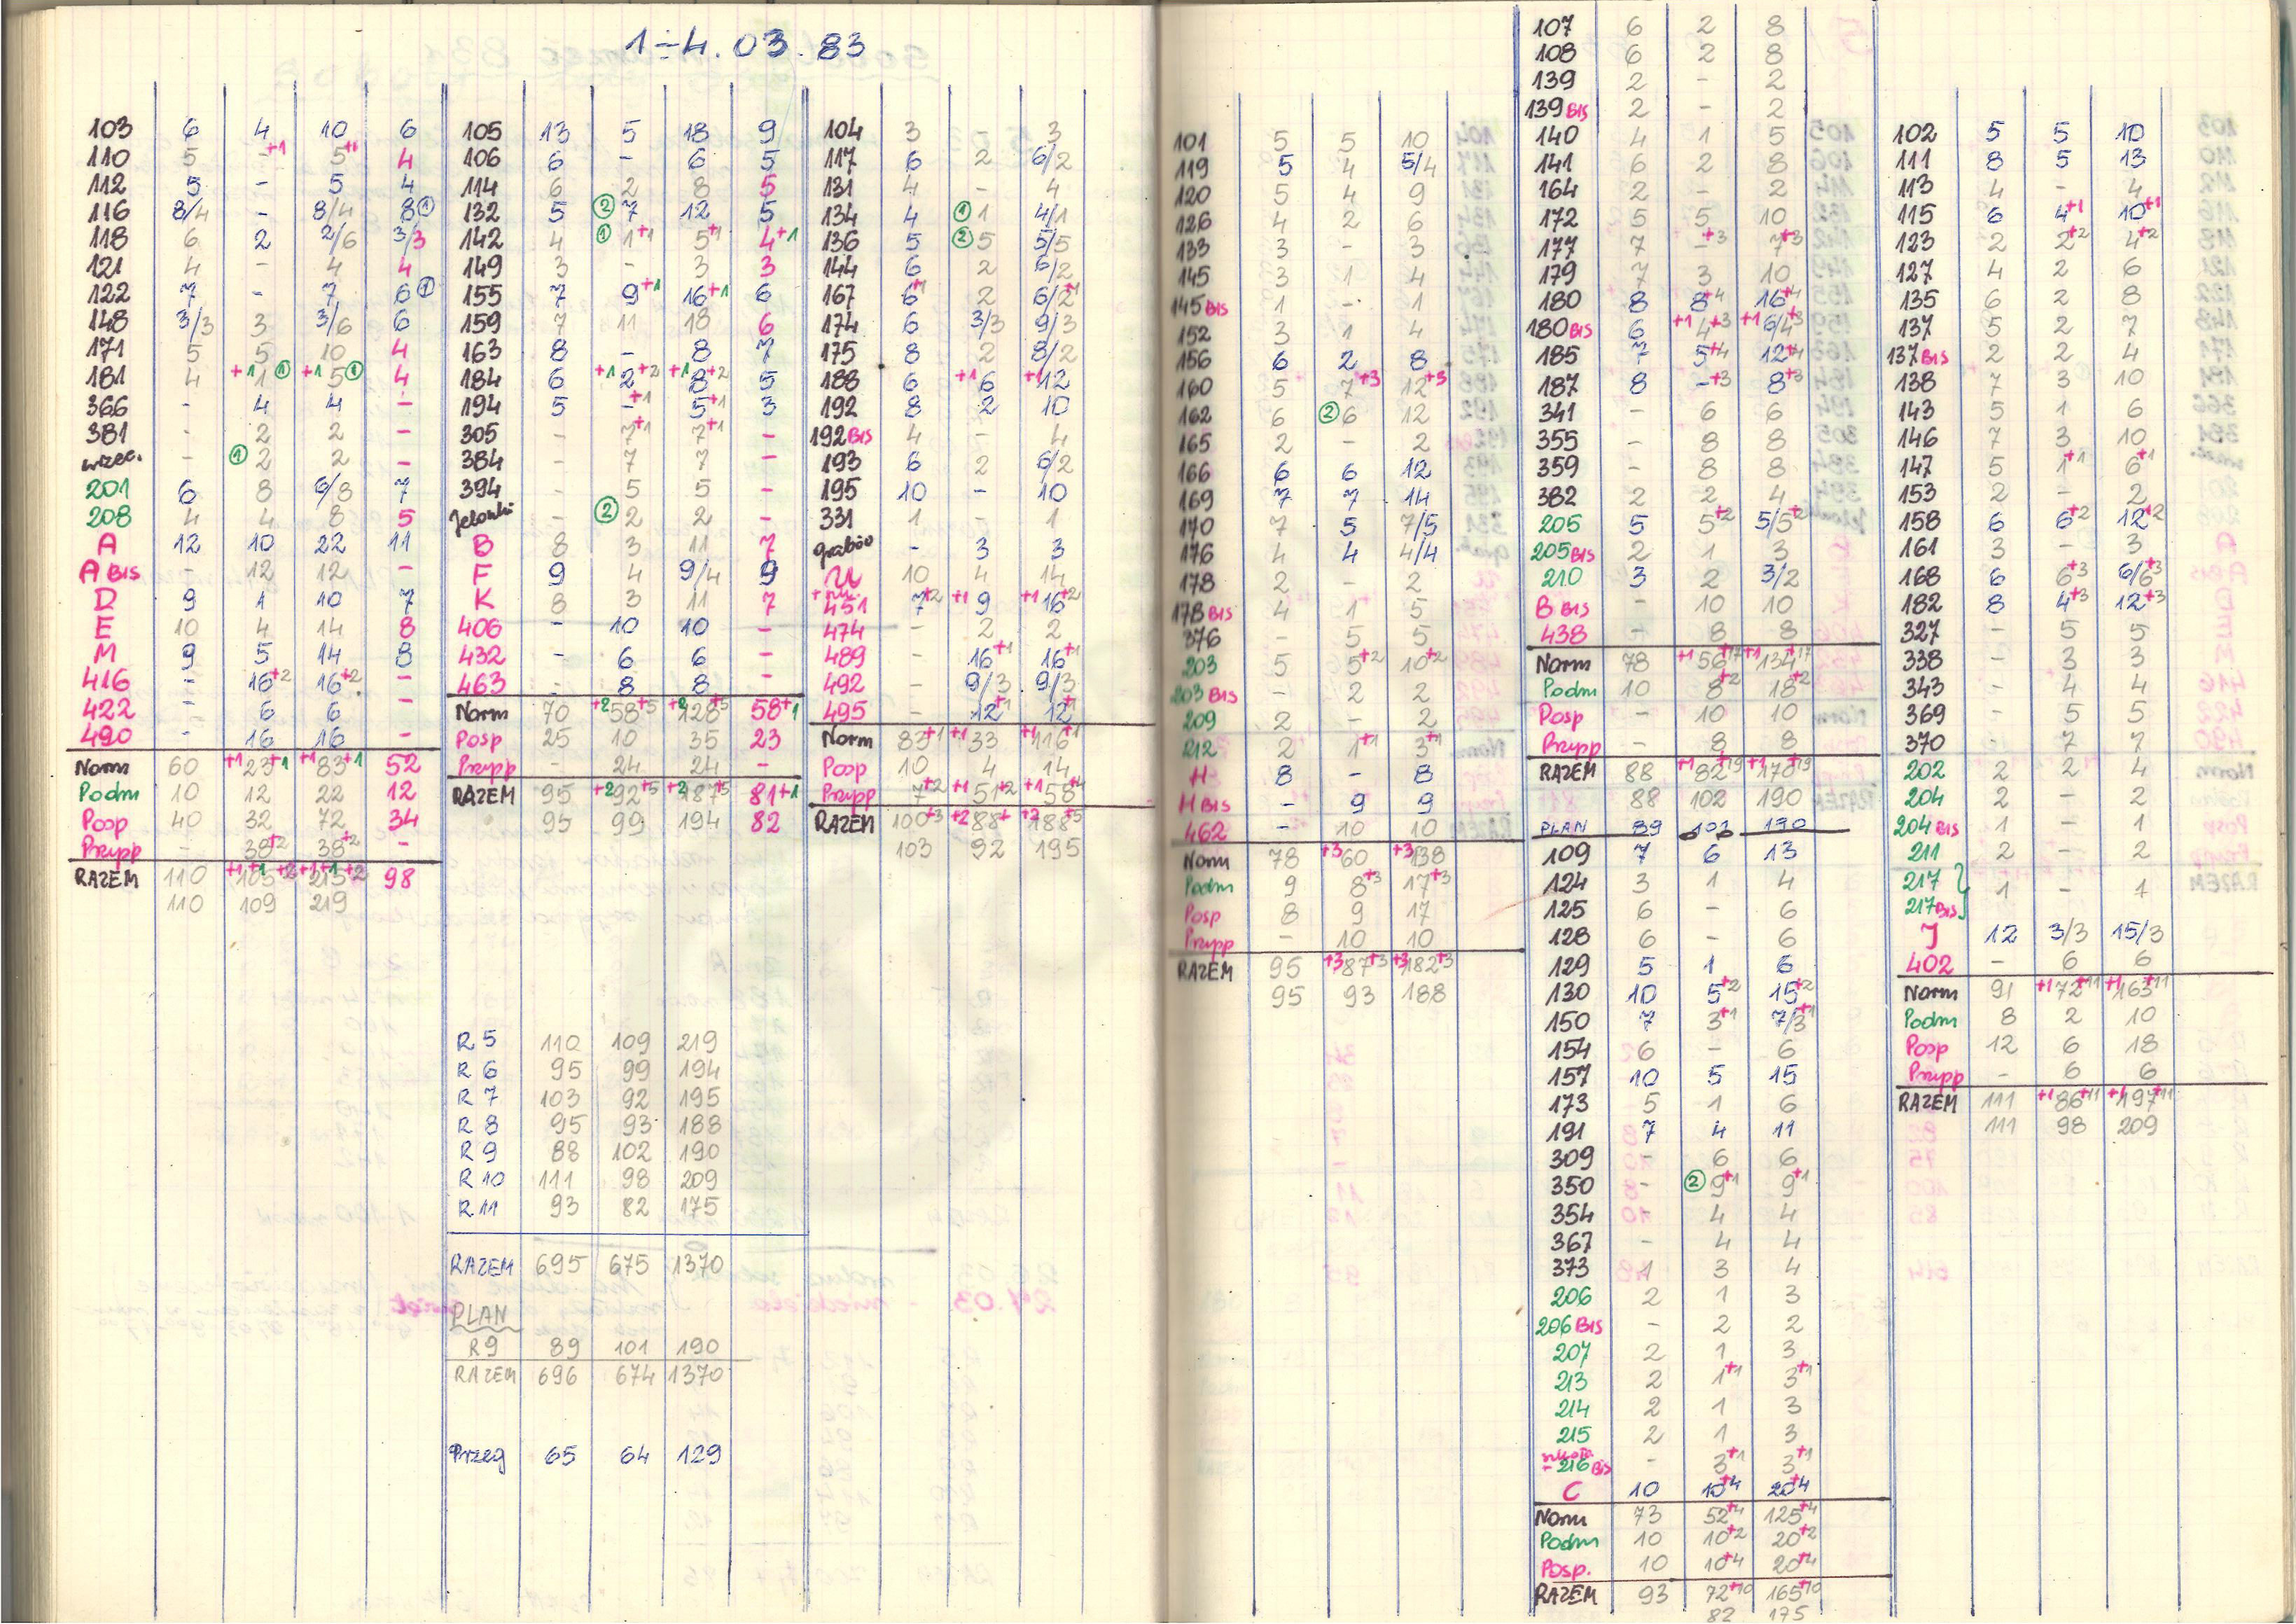 1-4.03.83
103 6 4 10 6
110 5 - +1 5 +1 4
112 5 - 5 4
116 8/4 - 8/4 8 ①
118 6 2 2/6 3/3
121 4 - 4 4
122 7 - 7 6 ①
148 3/3 3 3/6 6
171 5 5 10 4
181 4 +1 1 ① +1 5 ① 4
366 - 4 4 -
381 - 2 2 -
wrzec. - ① 2 2 -
201 6 8 6/8 7
208 4 4 8 5
A 12 10 22 11
A BIS - 12 12 -
D 9 1 10 7
E 10 4 14 8
M 9 5 14 8
416 - 16 +2 16 +2 -
422 - 6 6 -
490 - 16 16 -
Norm 60 +1 23 +1 +1 83 +1 52
Podm 10 12 22 12
Posp 40 32 72 34
Przypp - 38 +2 38 +2 -
RAZEM 110 +1 +1 105 +2 +1 +1 215 +2 98
110 109 219
105 13 5 18 9
106 6 - 6 5
114 6 2 8 5
132 5 ② 7 12 5
142 4 ① 1 +1 5 +1 4 +1
149 3 - 3 3
155 7 9 +1 16 +1 6
159 7 11 18 6
163 8 - 8 7
184 6 +1 2 +2 +1 8 +2 5
194 5 - +1 5 +1 3
305 - 7 +1 7 +1 -
384 - 7 7 -
394 - 5 5 -
Jelonki - ② 2 2 -
B 8 3 11 7
F 9 4 9/4 9
K 8 3 11 7
406 - 10 10 -
432 - 6 6 -
463 - 8 8 -
Norm 70 +2 58 +5 +2 128 +5 58 +1
Posp 25 10 35 23
Przypp - 24 24 -
RAZEM 95 +2 92 +5 +2 187 +5 81 +1
95 99 194 82
R 5 110 109 219
R 6 95 99 194
R 7 103 92 195
R 8 95 93 188
R 9 88 102 190
R 10 111 98 209
R 11 93 82 175
RAZEM 695 675 1370
PLAN
R9 89 101 190
RAZEM 696 674 1370
Przeg 65 64 129
104 3 3
117 6 2 6/2
131 4 - 4
134 4 ① 1 4/1
136 5 ② 5 5/5
144 6 2 6/2
167 6 +1 2 6/2 +1
174 6 3/3 9/3
175 8 2 8/2
188 6 +1 6 +1 12
192 8 2 10
192 BIS 4 - 4
193 6 2 6/2
195 10 - 10
331 1 - 1
grabów - 3 3
U 10 4 14
451 7 +2 +1 9 +1 16 +2
474 - 2 2
489 - 16 +1 16 +1
492 - 9/3 9/3
495 - 12 +1 12 +1
Norm 83 +1 +1 33 +1 116 +1
Posp 10 4 14
Przypp 7 +2 +1 51 +2 +1 58 +4
RAZEM 100 +3 +2 88 + +2 188 +5
103 92 195
101 5 5 10
119 5 4 5/4
120 5 4 9
126 4 2 6
133 3 - 3
145 3 1 4
145 BIS 1 - 1
152 3 1 4
156 6 2 8
160 5 7 +3 12 +3
162 6 ② 6 12
165 2 - 2
166 6 6 12
169 7 7 14
170 7 5 7/5
176 4 4 4/4
178 2 - 2
178 BIS 4 1 5
376 - 5 5
203 5 5 +2 10 +2
203 BIS - 2 2
209 2 - 2
212 2 1 +1 3 +1
H 8 - 8
H BIS - 9 9
462 - 10 10
Norm 78 +3 60 +3 138
Podm 9 8 +3 17 +3
Posp 8 9 17
Przypp - 10 10
RAZEM 95 +3 87 +3 +3 182 +3
95 93 188
107 6 2 8
108 6 2 8
139 2 - 2
139 BIS 2 - 2
140 4 1 5
141 6 2 8
164 2 - 2
172 5 5 10
177 7 - +3 7 +3
179 7 3 10
180 8 8 +4 16 +4
180 BIS 6 +1 4 +3 +1 6/4 +3
185 7 5 +4 12 +4
187 8 - +3 8 +3
341 - 6 6
355 - 8 8
359 - 8 8
382 2 2 4
205 5 5 +2 5/5 +2
205 BIS 2 1 3
210 3 2 3/2
B BIS - 10 10
438 - 8 8
Norm 78 +1 56 +17 +1 134 +17
Podm 10 8 +2 18 +2
Posp - 10 10
Przypp - 8 8
RAZEM 88 +1 82 +19 +1 170 +19
88 102 190
PLAN 89 101 190
109 7 6 13
124 3 1 4
125 6 - 6
128 6 - 6
129 5 1 6
130 10 5 +2 15 +2
150 7 3 +1 7/3 +1
154 6 - 6
157 10 5 15
173 5 1 6
191 7 4 11
309 - 6 6
350 - ② 9 +1 9 +1
354 - 4 4
367 - 4 4
373 1 3 4
206 2 1 3
206 BIS - 2 2
207 2 1 3
213 2 1 +1 3 +1
214 2 1 3
215 2 1 3
216 BIS - 3 +1 3 +1
C 10 10 +4 20 +4
Norm 73 52 +4 125 +4
Podm 10 10 +2 20 +2
Posp. 10 10 +4 20 +4
RAZEM 93 72 +10 165 +10
82 175
102 5 5 10
111 8 5 13
113 4 - 4
115 6 4 +1 10 +1
123 2 2 +2 4 +2
127 4 2 6
135 6 2 8
137 5 2 7
137 BIS 2 2 4
138 7 3 10
143 5 1 6
146 7 3 10
147 5 1 +1 6 +1
153 2 - 2
158 6 6 +2 12 +2
161 3 - 3
168 6 6 +3 6/6 +3
182 8 4 +3 12 +3
327 - 5 5
338 - 3 3
343 - 4 4
369 - 5 5
370 - 7 7
202 2 2 4
204 2 - 2
204 BIS 1 - 1
211 2 - 2
217 } 1 - 1
217 BIS
J 12 3/3 15/3
402 - 6 6
Norm 91 +1 72 +11 +1 163 +11
Podm 8 2 10
Posp 12 6 18
Przypp - 6 6
RAZEM 111 +1 86 +11 +1 197 +11
111 98 209